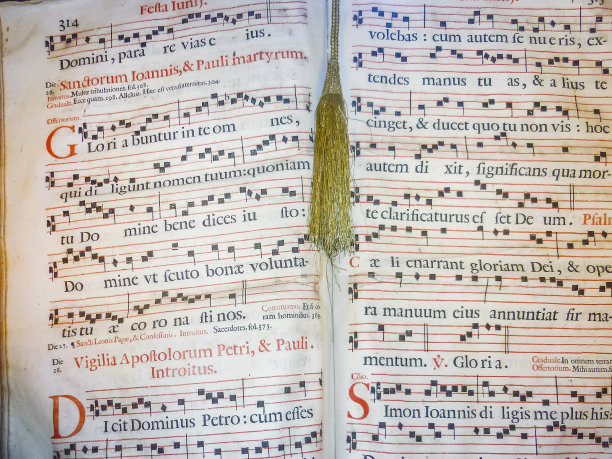 314
Festa Iunij.
Domini, para re vias e ius.
Die 26. Sanctorum Ioannis, & Pauli martyrum.
Introitus. Multæ tribulationes. fol.
Graduale. Ecce quam. 298. Alleluia. Hæc est vera fraternitas. 304.
Offertorium.
G Lo ri a buntur in te om nes,
qui di ligunt nomen tuum: quoniam
tu Do mine bene dices iu sto:
Do mine vt scuto bonæ volunta-
tis tu æ co ro na sti nos.
Communio. Et si co-
ram hominibus.
Die 27. ¶ Sancti Leonis Papæ, & Confessoris. Introitus. Sacerdotes. fol. 375.
Die 28. Vigilia Apostolorum Petri, & Pauli.
Introitus.
D I cit Dominus Petro: cum esses
Festa Iunij.
volebas: cum autem se nu eris, ex-
tendes manus tu as, & a lius te
cinget, & ducet quo tu non vis: hoc
autem di xit, significans qua mor-
te clarificaturus es set De um. Psal
C æ li enarrant gloriam Dei, & ope
ra manuum eius annuntiat fir ma-
mentum. ℣. Glo ri a.
Graduale. In omnem terram
Offertorium. Mihi autem
S Imon Ioannis di ligis me plus his: